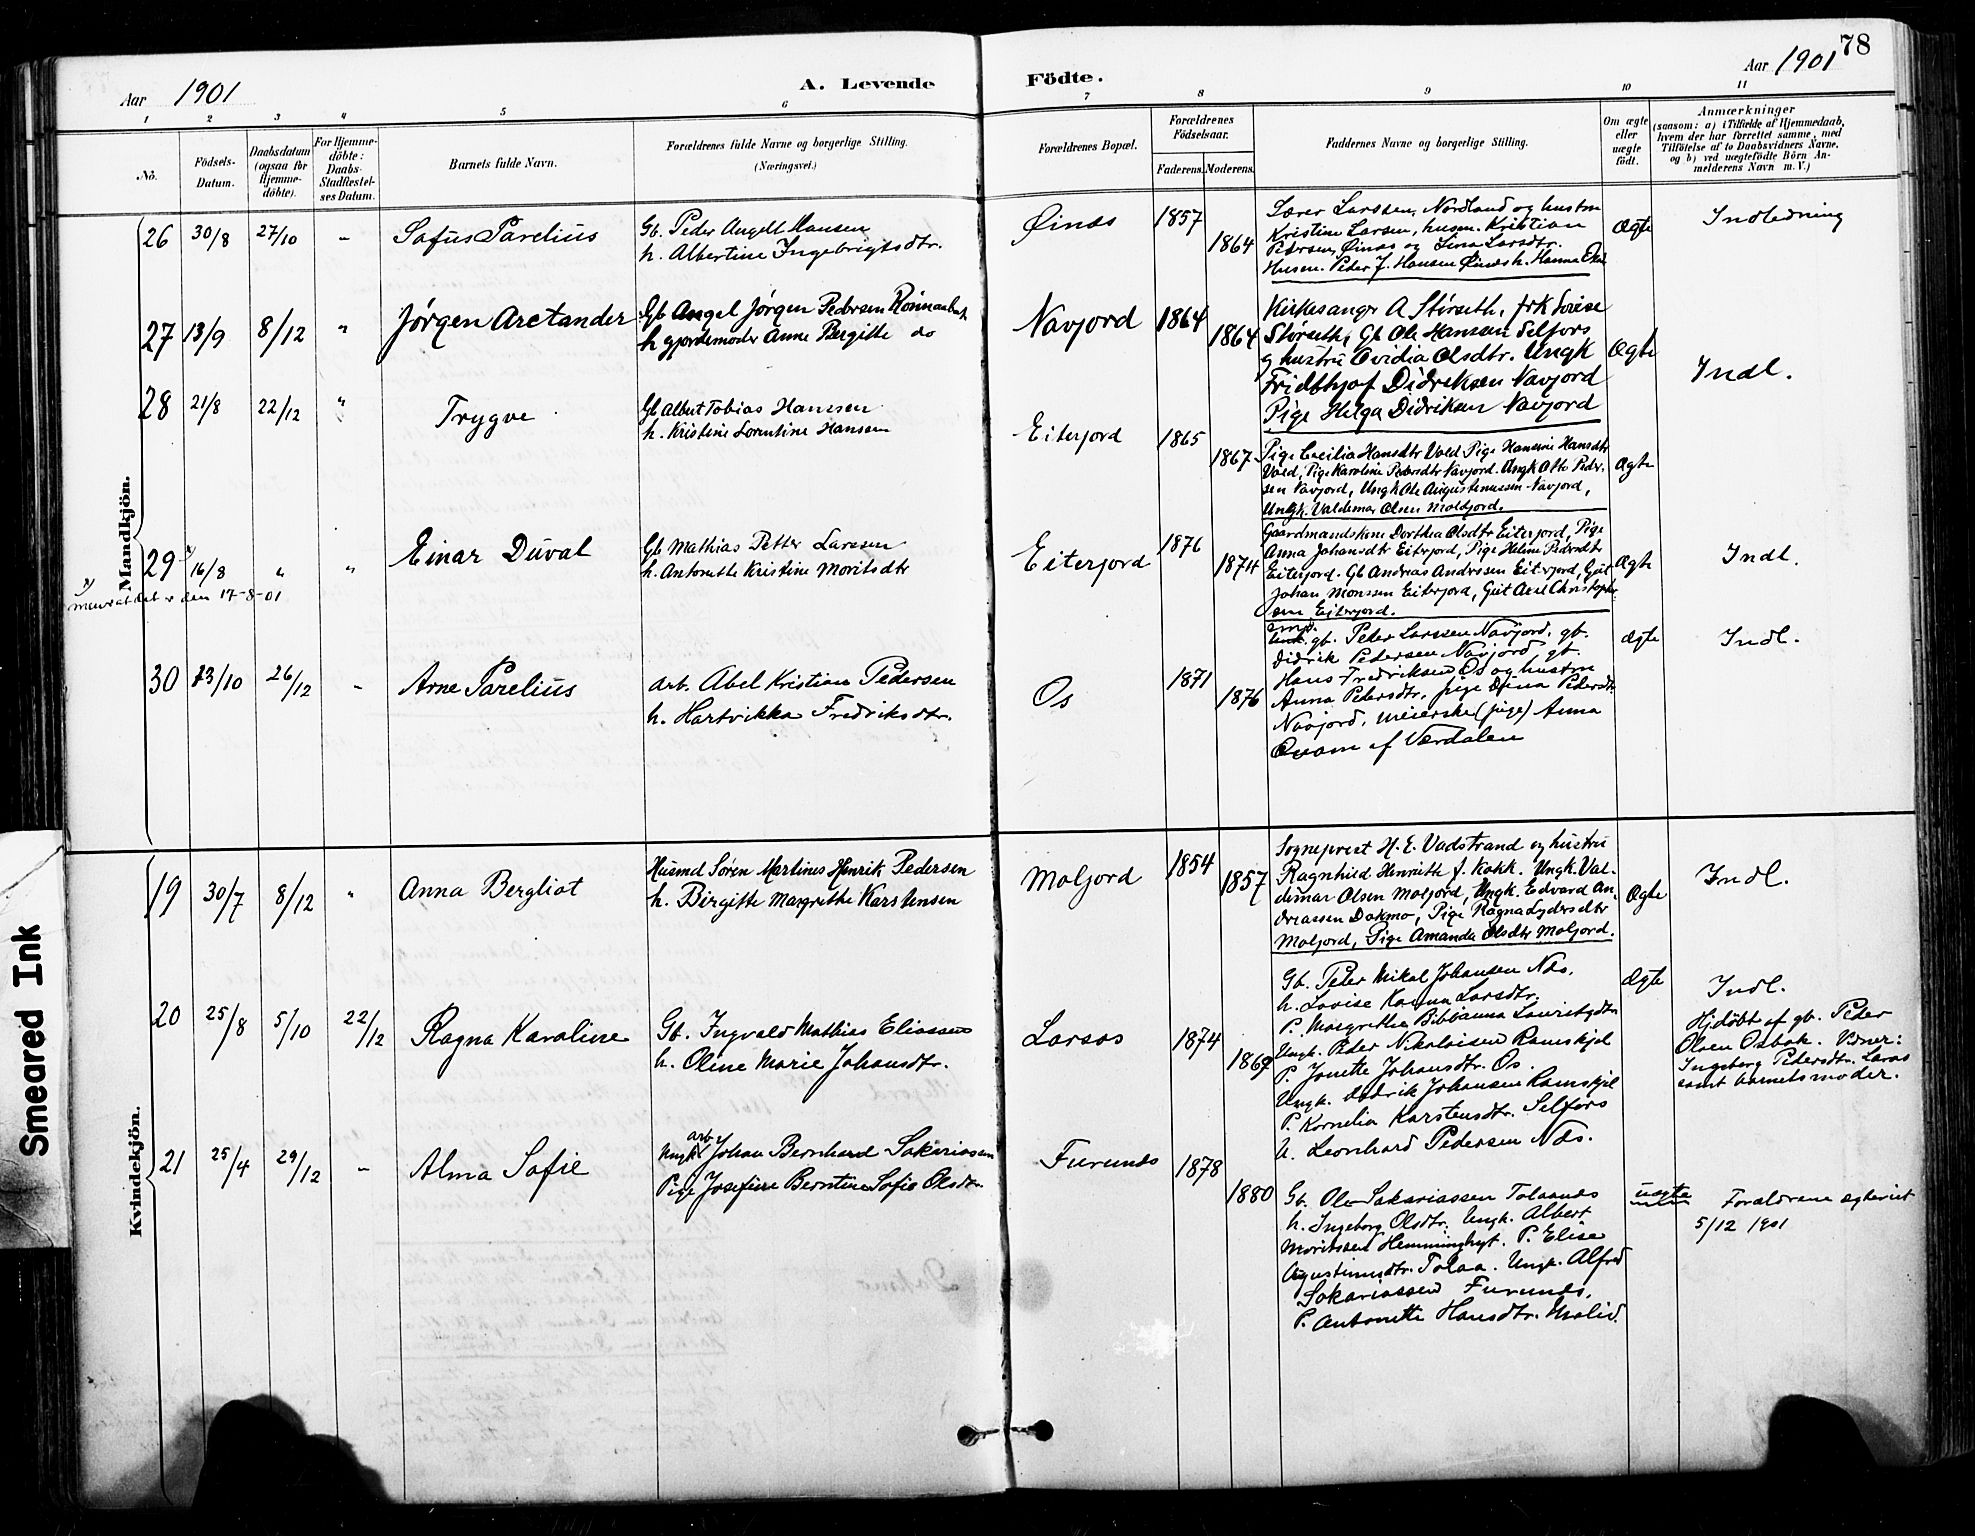 78
Aar 1901
A. Levende Födte.
Aar 1901
1 2 3 4 5 6 7 8 9 10 11
No.
Födsels-Datum.
Daabsdatum (ogsaa for Hjemme-döbte).
For Hjemme-döbte: Daabs-Stadfæstel-ses Datum.
Barnets fulde Navn.
Forældrenes fulde Navne og borgerlige Stilling.
(Næringsvei.)
Forældrenes Bopæl.
Forældrenes Födselsaar.
Faderens. Moderens.
Faddernes Navne og borgerlige Stilling.
Om ægte eller uægte födt.
Anmærkninger
(saasom: a) i Tilfælde af Hjemmedaab,
hvem der har forrettet samme, med
Tilföielse af to Daabsvidners Navne,
og b) ved uægtefödte Börn An-
melderens Navn m. V.)
Mandkjön.
26 30/8 27/10 - Sofus Parelius
Gb. Peder Angell Hansen
h. Albertine Ingebrigtsdtr.
Øinæs 1857 1864
Lærer Larssen, Nordland og hustru
Kristine Larsen, husm. Kristian
Pedersen, Øinæs og Lina Larsdtr.
Husm. Peder J. Hansen Øinæs h. Hanna
Ægte
Indledning
27 13/9 8/12 " Jørgen Arctander
Gb Angel Jørgen Pedersen
h gjordemoder Anne Bergitte do
Navjord 1864 1864
Kirkesangr A Størseth, frk Lovise
Størseth, Gb Ole Hansen Selfors
g hustru Ovidia Olsdtr. Ungk
Fridthjof Didriksen Navjord
Pige Helga Didriksen Navjord
Ægte
Indl.
28 21/8 22/12 " Trygve
Gb Albert Tobias Hanssen
h. Kristine Lorentine Hansen
Eiterjord 1865 1867
Pige Cecilia Hansdtr Vold Pige Hansine Hansdtr
Vold, Pige Karoline Pedersdtr Navjord. Ungk Otto Peder-
sen Navjord, Ungk Ole Augustinussen Navjord,
Ungk. Valdemar Olsen Moldjord.
Ægte
29 16/8 " " Einar Duval
den 17-8-01
Gb Mathias Petter Larssen
h. Antonette Kristine Moritsdtr
Eiterjord 1876 1874
Gaardmandskone Dorthea Olsdtr Eiterjord, Pige
Anna Johansdtr Eiterjord, Pige Helene Pedersdtr
Eiterjord. Gb Andreas Anderssen Eiterjord, Gut
Johan Monssen Eiterjord, Gut Axel Christophe
sen Eiterjord.
Ægte
Indl.
30 23/10 26/12 - Arne Parelius
arb. Abel Kristian Pedersen
h. Hartvikka Fredriksdtr.
Os 1871 1876
gb. Peder Larssen Navjord. gb.
Didrik Pedersen Navjord gb.
Hans Fredriksen Os og hustru
Anna Pedersdtr, pige Dina Pedersdtr
Navjord, meierske (pige) Anna
Qvam af Værdalen
Ægte
Indl.
Kvindekjön.
19 30/7 8/12 " Anna Bergliot
Husmd Søren Martinus Henrik Pedersen
h. Birgitte Margrethe Karstensen
Moljord 1854 1857
Sogneprest H. E. Vadstrand og hustru
Ragnhild Henriette f. Kokk. Ungk. Val-
demar Olsen Moljord, Ungk. Edvard An-
dreassen Dokmo, Pige Ragna Lydersdtr
Moljord, Pige Amanda Olsdtr Moljord.
Ægte
Indl.
20 25/8 5/10 22/12 Ragna Karoline
Gb. Ingvald Mathias Eliassen
h. Oline Marie Johansdtr.
Larsos 1874 1869
Gb. Peter Mikal Johansen Næs.
h. Lovise Kasina Larsdtr.
P. Margrethe Bibbianna Lauritsdtr
Ungk. Peder Nikolaisen Ramskjel
P. Jonette Johansdtr. Os.
Ungk. Didrik Johansen Ramskjel
P. Kornelia Karstensdtr. Selfors
U. Leonhard Pedersen Næs.
Ægte
Indl.
Hjdöbt af gb. Peder
Olsen Osbak. Vidner:
Ingeborg Pedersdtr. Larsos
samt barnets moder.
21 25/4 29/12 - Alma Sofie
arb
Ungk. Johan Bernhard Sakariassen
Pige Josefine Berntine Sofie Olsdtr.
Furunes 1878 1880
Gb. Ole Sakariassen Tolaanes
h. Ingeborg Olsdtr. Ungk. Albert
Moritssen Hemminghyt. P. Elise
Augustinusdtr. Tolaa. Ungk. Alfred
Sakariassen Furunes.
P. Antonette Hansdtr. Molid.
uægte
Forældrene ægteviet
5/12 1901
Smeared Ink